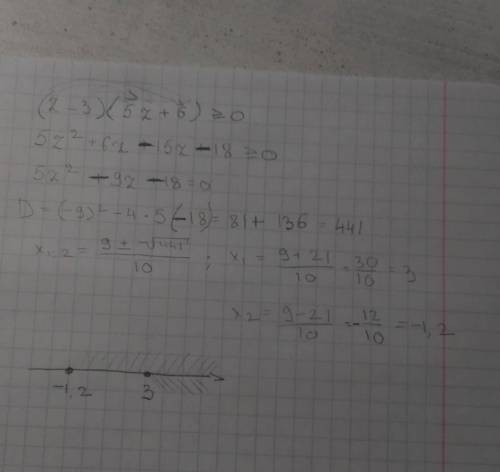 (z-3)(5z+6) ≥ 0
5z² + 6z - 15z - 18 ≥ 0
5z² - 9z - 18 = 0
D = (-9)² - 4 · 5(-18) = 81 + 136 = 441
x₁,₂ = (9 ± √441)/10 ; x₁ = (9+21)/10 = 30/10 = 3
x₂ = (9-21)/10 = -12/10 = -1,2
-1,2 3